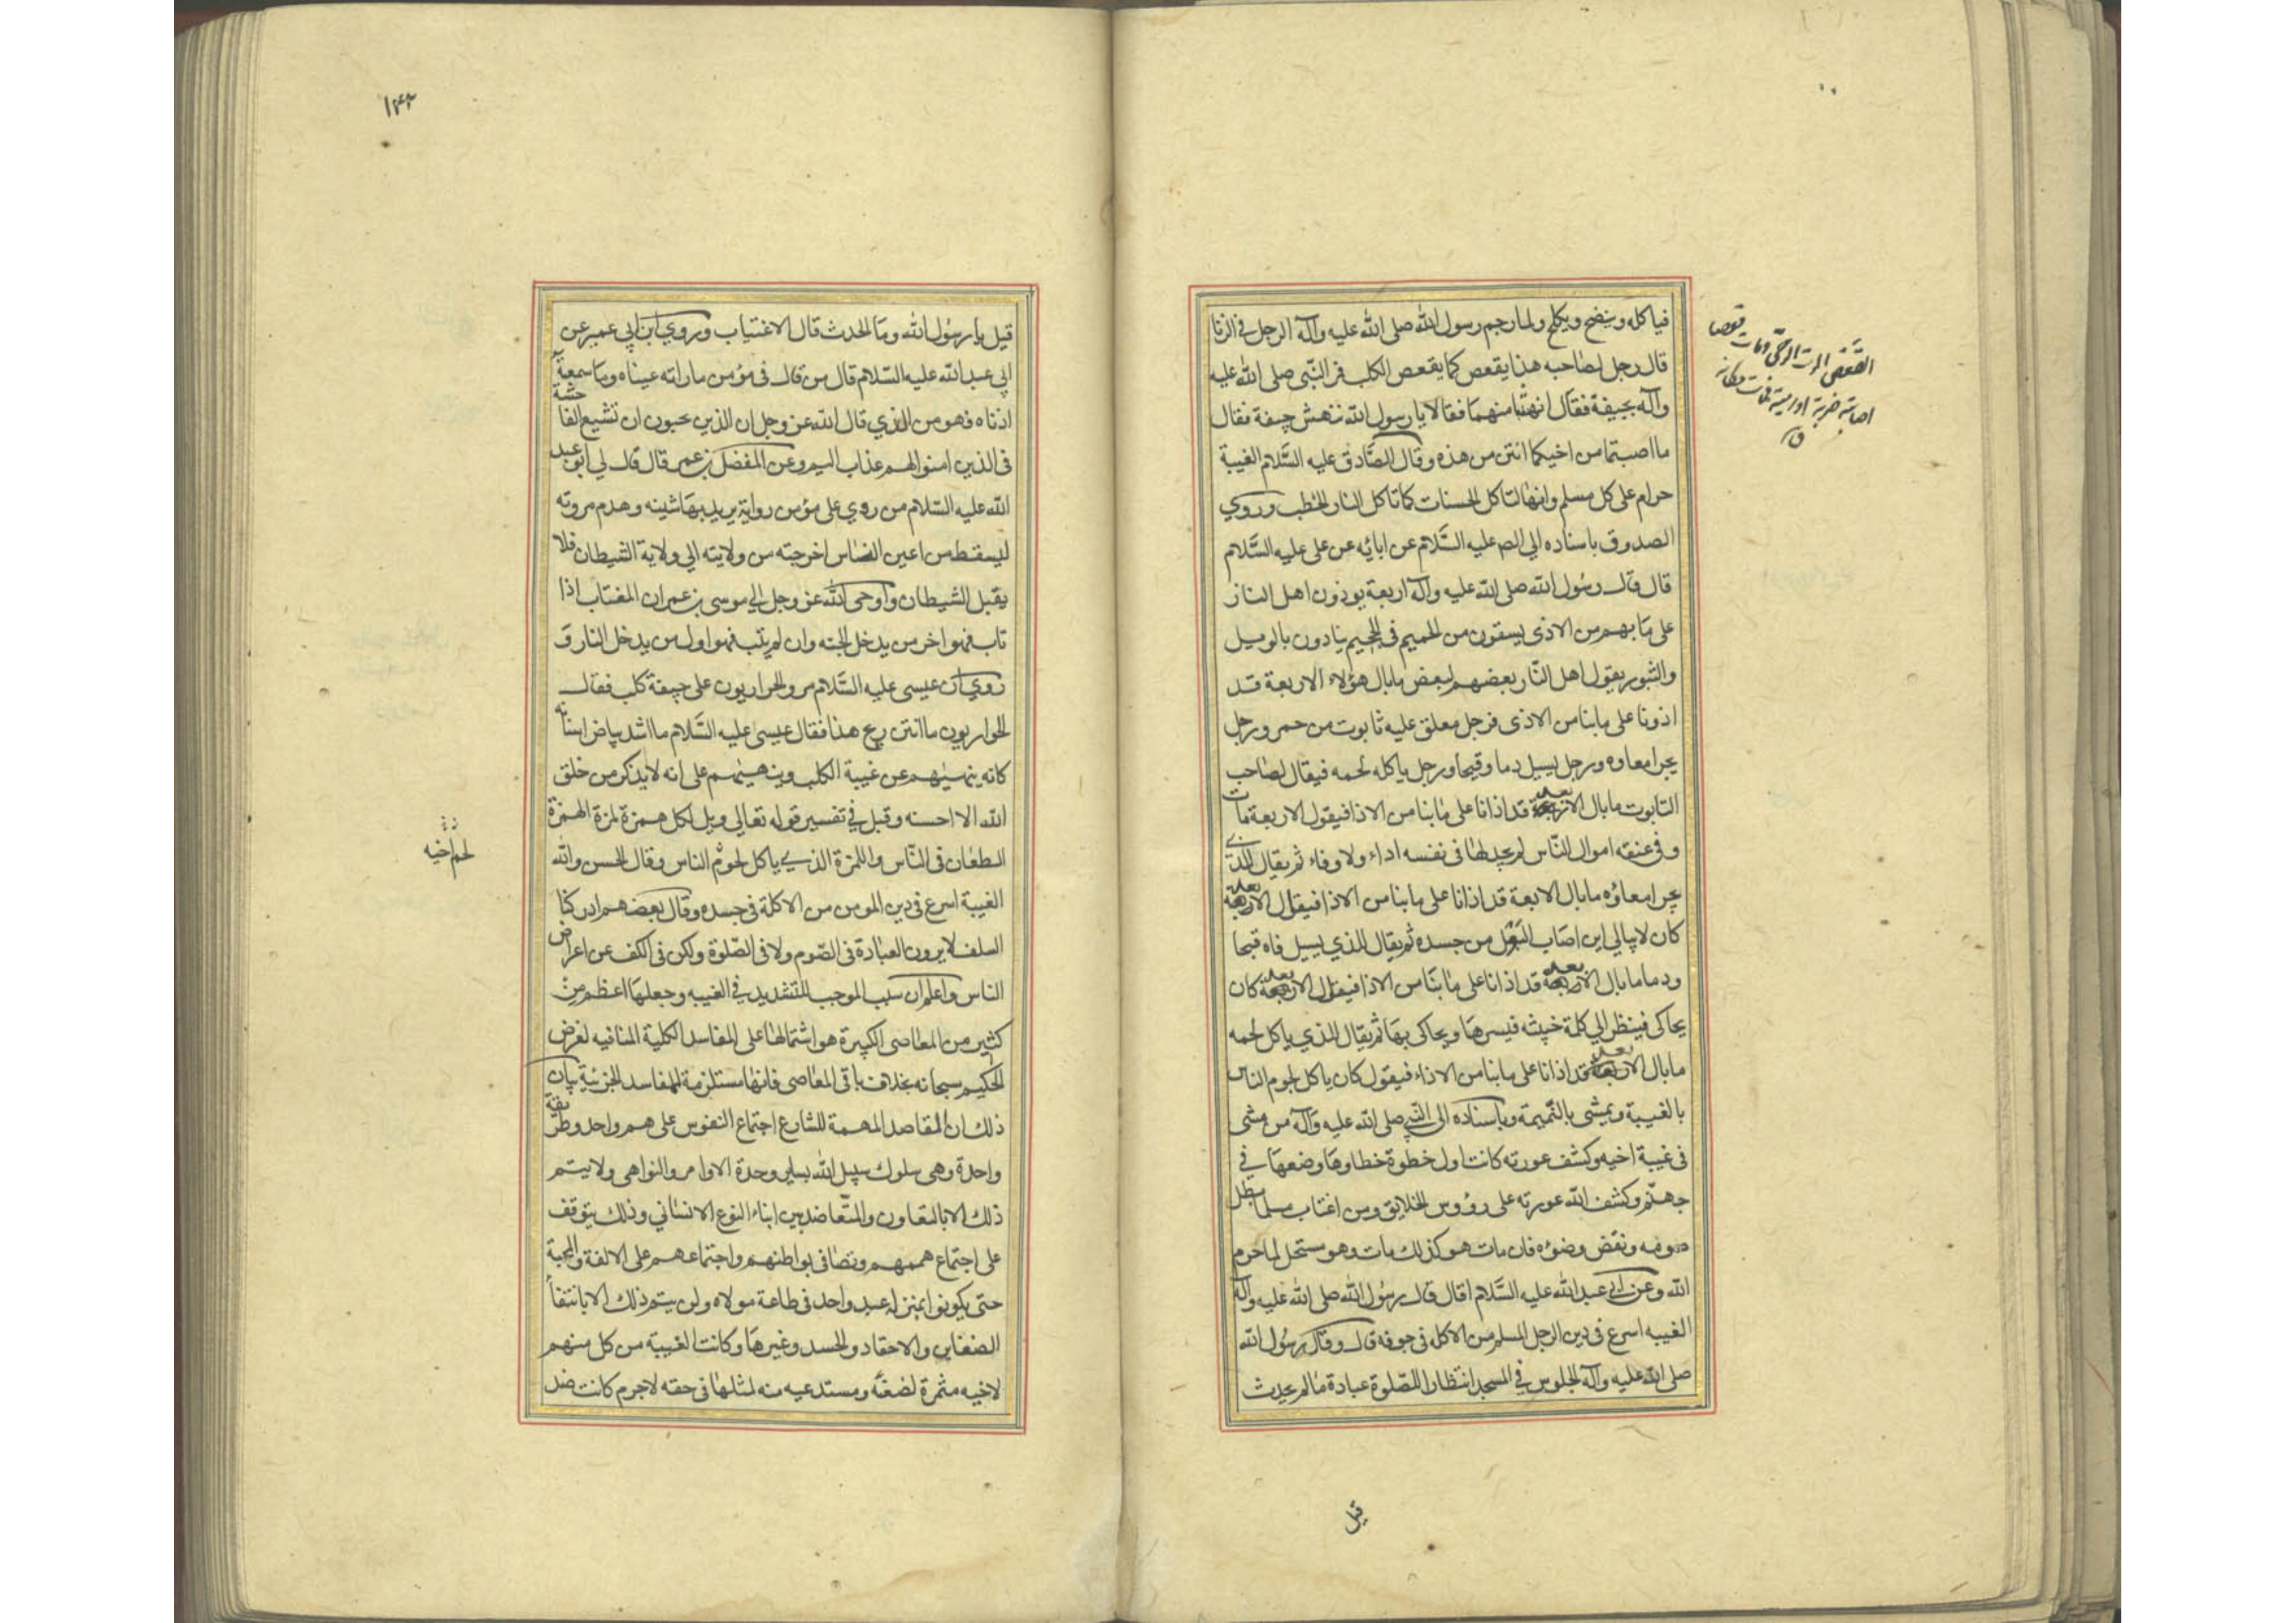 فياكله وينضح ويكلح ولما رجم رسول الله صلى الله عليه وآله الرجل في الزنا
قال رجل لصاحبه هذا يقعص كما يقعص الكلب فمر النبي صلى الله عليه
وآله بجيفة فقال انهشا منهما فقالا يا رسول الله ننهش جيفة فقال
ما اصبتما من اخيكما انتن من هذه وقال الصادق عليه السلام الغيبة
حرام على كل مسلم وانها لتاكل الحسنات كما تاكل النار الحطب وروي
الصدوق باسناده الى الص عليه السلام عن ابائه عن على عليه السلام
قال قال رسول الله صلى الله عليه وآله اربعة يوذون اهل النار
على ما بهم من الاذى يسقون من الحميم في الجحيم ينادون بالويل
والثبور يقول اهل النار بعضهم لبعض ما بال هؤلاء الاربعة قد
اذونا على ما بنا من الاذى فرجل معلق عليه تابوت من جمر ورجل
يجر امعاوه ورجل يسيل دما وقيحا ورجل ياكله لحمه فيقال لصاحب
التابوت ما بال الابعد قد اذانا على ما بنا من الاذا فيقول الاربعة مات
وفى عنقه اموال الناس لم يجد لها فى نفسه اداء ولا وفاء ثم يقال للذي
يجر امعاؤه ما بال الابعة قد اذانا على ما بنا من الاذا فيقول الابعد
كان لا يبالي اين اصاب البول من جسده ثم يقال للذي يسيل فاه قيحا
ودما ما بال الابعد قد اذانا على ما بنا من الاذا فيقول الابعد كان
يحاكى فينظر الي كلمة خبيثه فيسرها ويحاكى بها ثم يقال للذي ياكل لحمه
ما بال الابعد قد اذانا على ما بنا من الاذاء فيقول كان ياكل لحوم الناس
بالغيبة ويمشى بالنميمة وباسناده الى النبي صلى الله عليه وآله من مشى
فى غيبة اخيه وكشف عورته كانت اول خطوة خطاوها وضعها في
جهنم وكشف الله عورته على رؤوس الخلايق ومن اغتاب مسلما بطل
صومه ونقض وضوءه فان مات هو كذلك مات وهو مستحل لما حرم
الله وعن ابي عبد الله عليه السلام قال قال رسول الله صلى الله عليه وآله
الغيبه اسرع فى دين الرجل المسلم من الاكله فى جوفه قال وقال رسول الله
صلى الله عليه وآله الجلوس في المسجد انتظارا للصلوة عبادة ما لم يحدث
قيل
القعص الموت الوحي ومات قعصا
اصابته ضربة او رمية فمات مكانه
ق
١٤٢
قيل يا رسول الله وما الحدث قال الاغتياب وروي ابن ابي عمير عن
ابي عبد الله عليه السلام قال من قال فى مؤمن ما راته عيناه وما سمعته
اذناه فهو من الذي قال الله عز وجل ان الذين يحبون ان تشيع الفاحشة
فى الذين امنوا لهم عذاب اليم وعن المفضل بن عمر قال قال لي ابو عبد
الله عليه السلام من روي على مؤمن رواية يريد بها شينه وهدم مروته
ليسقط من اعين الناس اخرجته من ولايته الي ولاية الشيطان فلا
يقبل الشيطان واوحى الله عز وجل الي موسى بن عمران المغتاب اذا
تاب فهو اخر من يدخل الجنه وان لم يتب فهو اول من يدخل النار و
روي ان عيسى عليه السلام مر والحواريون على جيفة كلب فقال
الحواريون ما انتن ريح هذا فقال عيسى عليه السلام ما اشد بياض اسنانه
كانه ينهيهم عن غيبة الكلب وينهيهم على انه لا يذكر من خلق
الله الا احسنه وقيل في تفسير قوله تعالي ويل لكل همزة لمزة الهمزة
الطعان فى الناس واللمزة الذي ياكل لحوم الناس وقال الحسن والله
الغيبة اسرع فى دين المومن من الاكلة في جسده وقال بعضهم ادركنا
السلف لا يرون العبادة فى الصوم ولا فى الصلوة ولكن فى الكف عن اعراض
الناس واعلم ان سبب الموجب للتشديد في الغيبه وجعلها اعظم من
كثير من المعاصى الكبيرة هو اشتمالها على المفاسد الكلية المنافيه لغرض
الحكيم سبحانه بخلاف باقى المعاصى فانها مستلزمة للمفاسد الجزئية بيان
ذلك ان المقاصد المهمة للشارع اجتماع النفوس على هم واحد وطريقة
واحدة وهى سلوك سبيل الله بساير وحدة الاوامر والنواهى ولا يتم
ذلك الا بالتعاون والتعاضد بين ابناء النوع الانساني وذلك يتوقف
على اجتماع هممهم وتصافى بواطنهم واجتماعهم على الالفة والمحبة
حتى يكونوا بمنزله عبد واحد فى طاعة مولاه ولن يتم ذلك الا بانتفاء
الضغاين والاحقاد والحسد وغيرها وكانت الغيبة من كل منهم
لاخيه مثمرة لضغنه ومستدعيه منه لمثلها فى حقه لا جرم كانت ضد
لحم اخيه